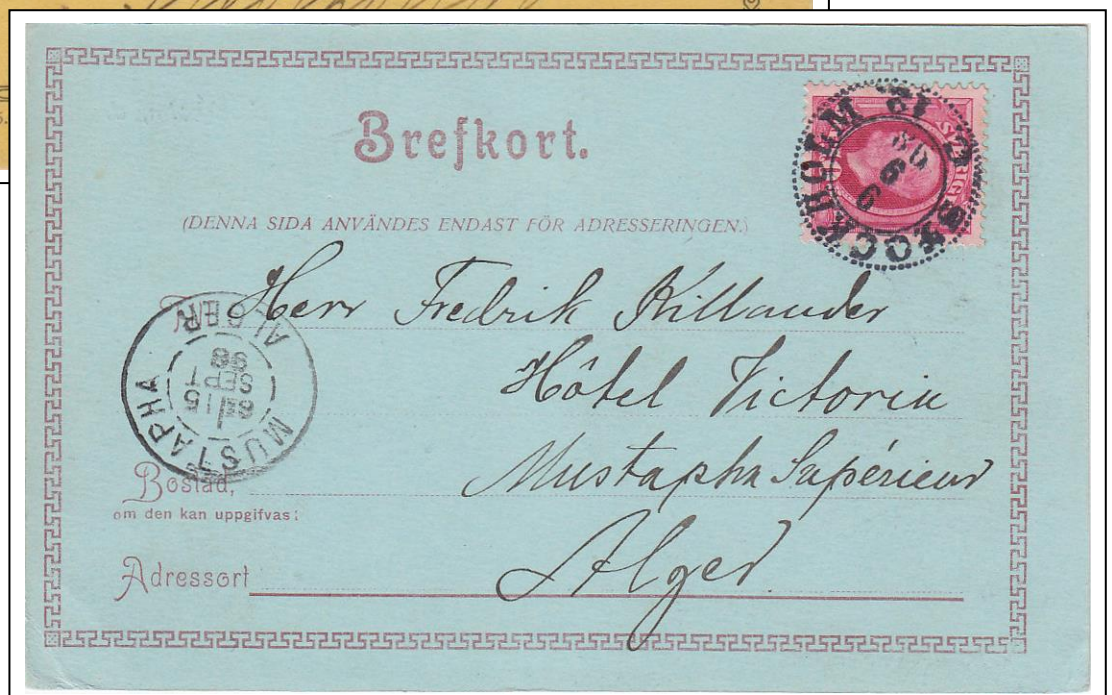 Brefkort.
(DENNA SIDA ANVÄNDES ENDAST FÖR ADRESSERINGEN.)
SVERIGE
STOCKHOLM
Herr Fredrik Killander
Hôtel Victoria
Mustapha Supérieur
Alger
MUSTAPHA
ALGER
15
SEPT
98
Bostad,
om den kan uppgifvas:
Adressort